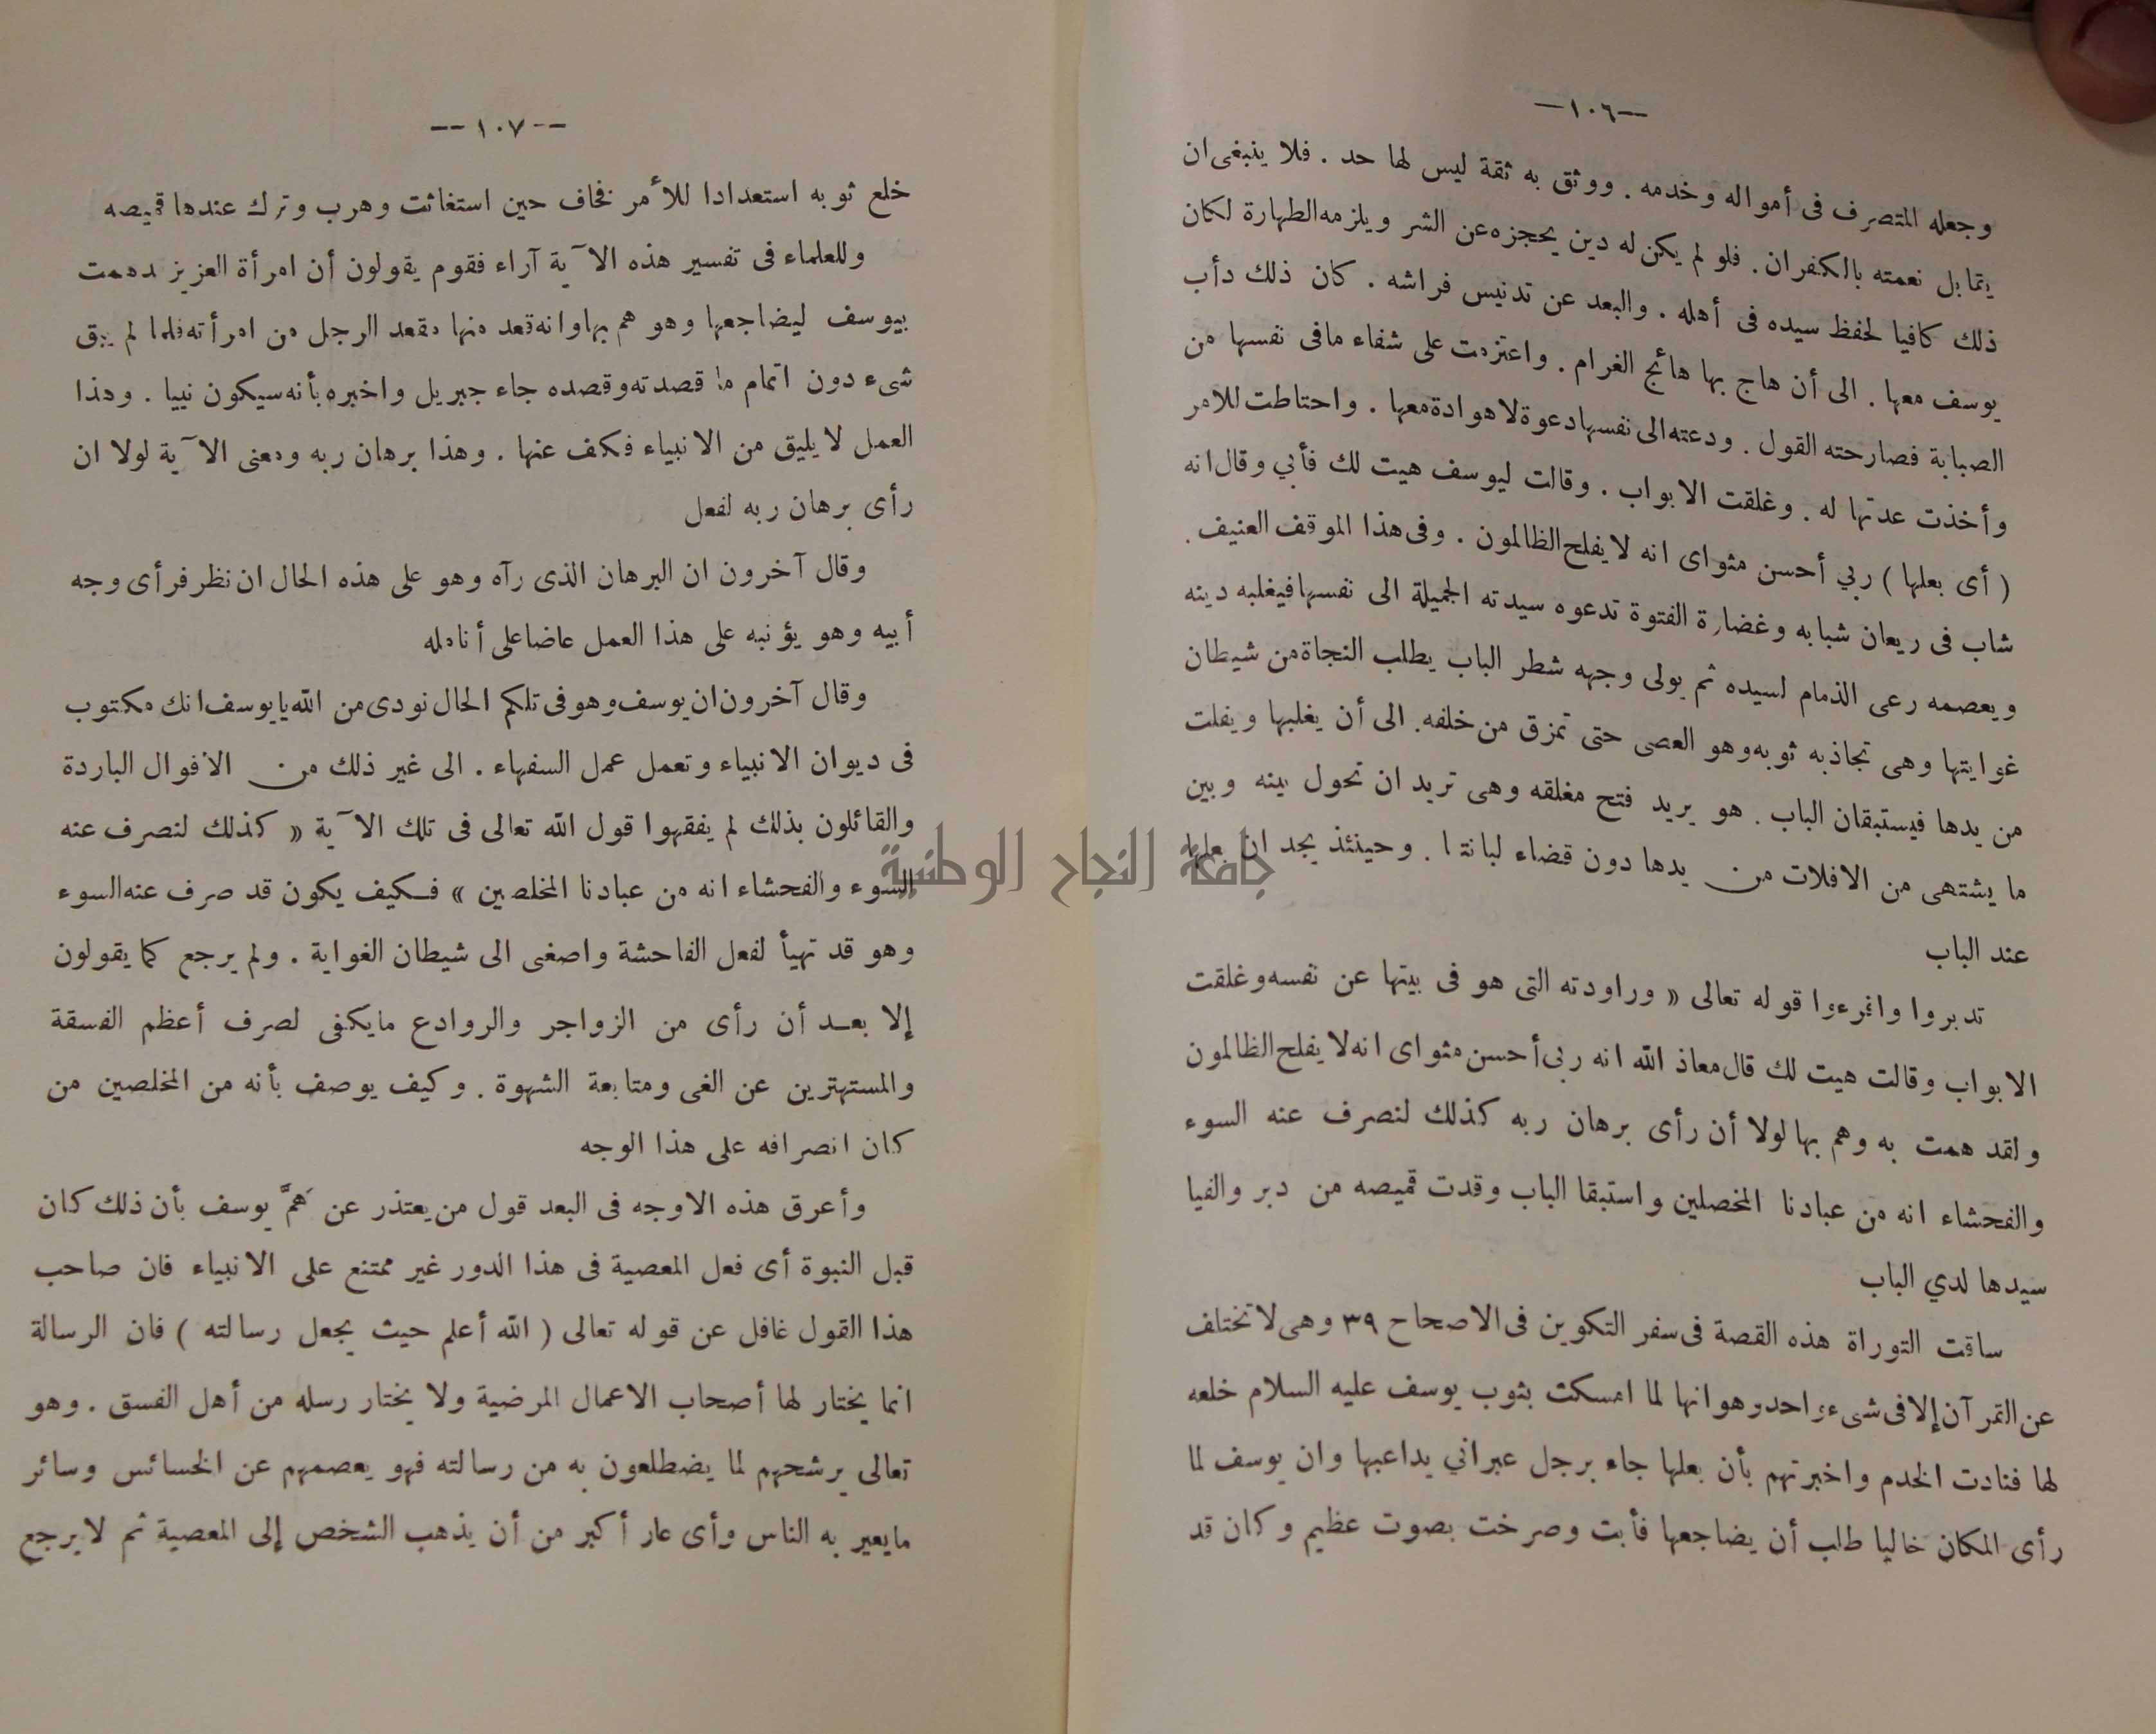 —١٠٦—
وجعله المتصرف فى أمواله وخدمه . ووثق به ثقة ليس لها حد . فلا ينبغى ان
يقابل نعمته بالكفران . فلو لم يكن له دين يحجزه عن الشر ويلزمه الطهارة لكان
ذلك كافيا لحفظ سيده فى أهله . والبعد عن تدنيس فراشه . كان ذلك دأب
يوسف معها . الى أن هاج بها هائج الغرام . واعتزمت على شفاء مافى نفسها من
الصبابة فصارحته القول . ودعته الى نفسها دعوة لاهوادة معها . واحتاطت للامر
وأخذت عدتها له . وغلقت الابواب . وقالت ليوسف هيت لك فأبي وقال انه
( أى بعلها ) ربي أحسن مثواى انه لا يفلح الظالمون . وفى هذا الموقف العنيف .
شاب فى ريعان شبابه وغضارة الفتوة تدعوه سيدته الجميلة الى نفسها فيغلبه دينه
ويعصمه رعى الذمام لسيده ثم يولى وجهه شطر الباب يطلب النجاة من شيطان
غوايتها وهى تجاذبه ثوبه وهو العصى حتى تمزق من خلفه. الى أن يغلبها ويفلت
من يدها فيستبقان الباب . هو يريد فتح مغلقه وهى تريد ان تحول بينه وبين
ما يشتهى من الافلات من يدها دون قضاء لبانتها . وحينئذ يجد ان بعلها
عند الباب
تدبروا واقرءوا قوله تعالى « وراودته التى هو فى بيتها عن نفسه وغلقت
الابواب وقالت هيت لك قال معاذ الله انه ربى أحسن مثواى انه لا يفلح الظالمون
ولقد همت به وهم بها لولا أن رأى برهان ربه كذلك لنصرف عنه السوء
والفحشاء انه من عبادنا المخصلين واستبقا الباب وقدت قميصه من دبر والفيا
سيدها لدي الباب
ساقت التوراة هذه القصة فى سفر التكوين فى الاصحاح ٣٩ وهى لا تختلف
عن القرآن إلا فى شىء واحد وهو انها لما امسكت بثوب يوسف عليه السلام خلعه
لها فنادت الخدم واخبرتهم بأن بعلها جاء برجل عبراني يداعبها وان يوسف لما
رأى المكان خاليا طلب أن يضاجعها فأبت وصرخت بصوت عظيم وكان قد
—١٠٧—
خلع ثوبه استعدادا للأمر فخاف حين استغاثت وهرب وترك عندها قميصه
وللعلماء فى تفسير هذه الآية آراء فقوم يقولون أن امرأة العزيز همت
بيوسف ليضاجعها وهو هم بها وانه قعد منها مقعد الرجل من امرأته فلما لم يبق
شىء دون اتمام ما قصدته وقصده جاء جبريل واخبره بأنه سيكون نبيا . وهذا
العمل لا يليق من الانبياء فكف عنها . وهذا برهان ربه ومعنى الآية لولا ان
رأى برهان ربه لفعل
وقال آخرون ان البرهان الذى رآه وهو على هذه الحال ان نظر فرأى وجه
أبيه وهو يؤنبه على هذا العمل عاضا على أنامله
وقال آخرون ان يوسف وهو فى تلكم الحال نودى من الله يا يوسف انك مكتوب
فى ديوان الانبياء وتعمل عمل السفهاء . الى غير ذلك من الاقوال الباردة
والقائلون بذلك لم يفقهوا قول الله تعالى فى تلك الآية « كذلك لنصرف عنه
السوء والفحشاء انه من عبادنا المخلصين » فكيف يكون قد صرف عنه السوء
وهو قد تهيأ لفعل الفاحشة واصغى الى شيطان الغواية . ولم يرجع كما يقولون
إلا بعد أن رأى من الزواجر والروادع مايكفى لصرف أعظم الفسقة
والمستهترين عن الغى ومتابعة الشهوة . وكيف يوصف بأنه من المخلصين من
كان انصرافه على هذا الوجه
وأعرق هذه الاوجه فى البعد قول من يعتذر عن هَمَّ يوسف بأن ذلك كان
قبل النبوة أى فعل المعصية فى هذا الدور غير ممتنع على الانبياء فان صاحب
هذا القول غافل عن قوله تعالى ( الله أعلم حيث يجعل رسالته ) فان الرسالة
انما يختار لها أصحاب الاعمال المرضية ولا يختار رسله من أهل الفسق . وهو
تعالى يرشحهم لما يضطلعون به من رسالته فهو يعصمهم عن الخسائس وسائر
مايعير به الناس وأى عار أكبر من أن يذهب الشخص إلى المعصية ثم لا يرجع
جامعة النجاح الوطنية